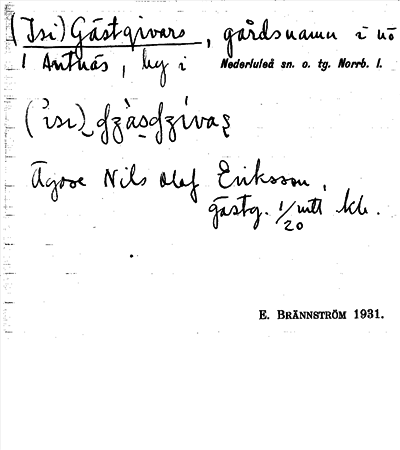 (Isi) Gästgivars, gårdsnamn i nö
i Antnäs, by i Nederluleå sn. o. tg. Norrb. l.
Ägare Nils Olof Eriksson,
gästg. 1/20 mtl kr.
E. BRÄNNSTRÖM 1931.